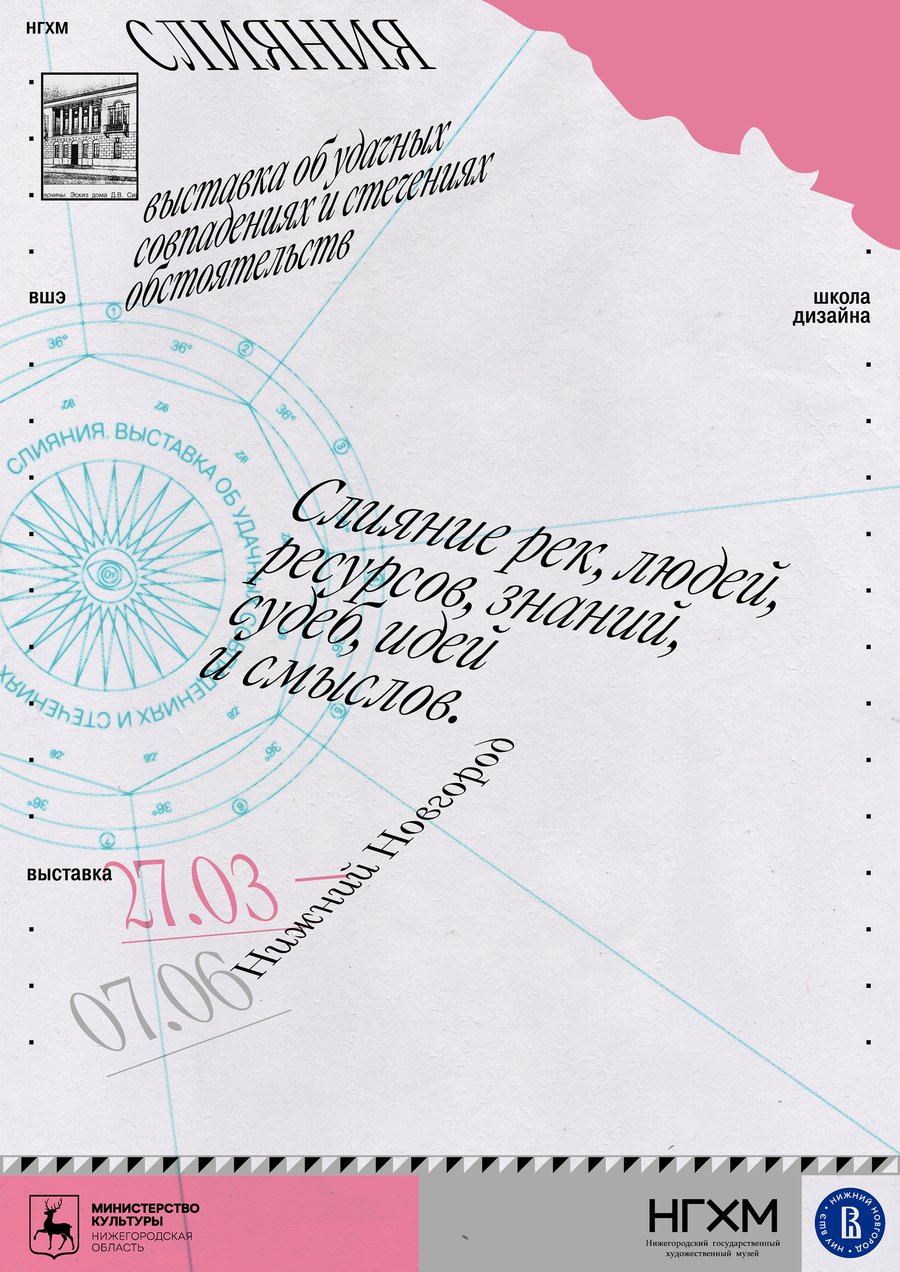 НГХМ
СЛИЯНИЯ
выставка об удачных
совпадениях и стечениях
обстоятельств
ВШЭ
школа
дизайна
1
36°
36°
2
36°
3
СЛИЯНИЯ. ВЫСТАВКА ОБ УДАЧНЫХ СОВПАДЕНИЯХ И СТЕЧЕНИЯХ
Слияние рек, людей,
ресурсов, знаний,
судеб, идей
и смыслов.
36°
36°
36°
6
7
Нижний Новгород
выставка
27.03 —
07.06
МИНИСТЕРСТВО
КУЛЬТУРЫ
НИЖЕГОРОДСКАЯ
ОБЛАСТЬ
НГХМ
Нижегородский государственный
художественный музей
НИУ ВШЭ • НИЖНИЙ НОВГОРОД •